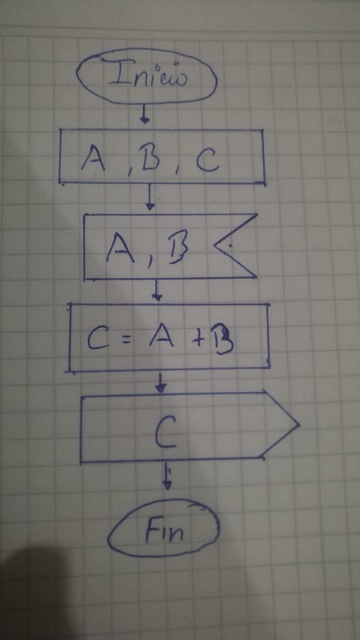 Inicio
A, B, C
A, B
C = A + B
C
Fin